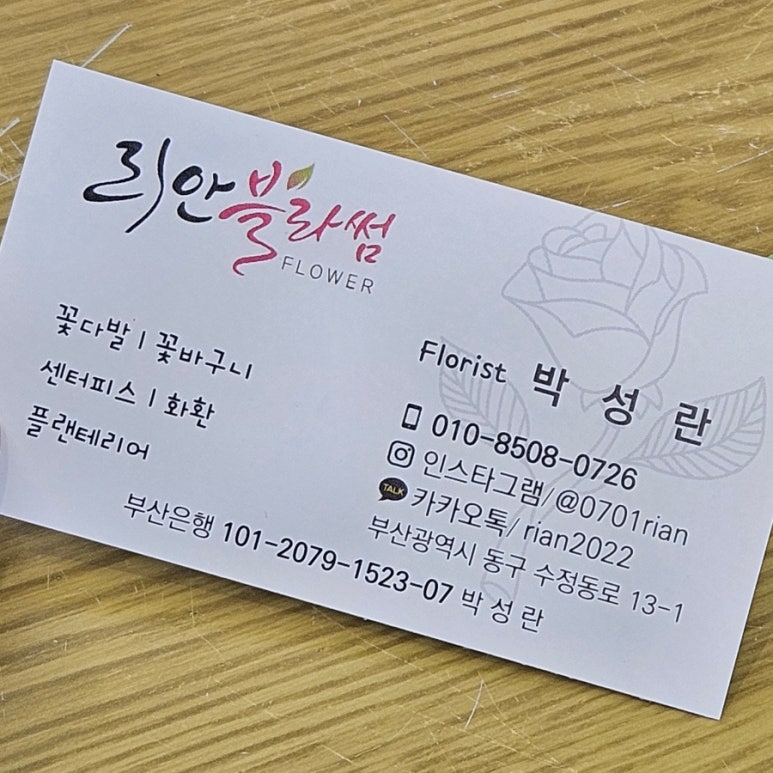 리안블라썸
FLOWER
꽃다발 | 꽃바구니
센터피스 | 화환
플랜테리어
Florist 박성란
010-8508-0726
인스타그램/@0701rian
TALK 카카오톡/rian2022
부산광역시 동구 수정동로 13-1
부산은행 101-2079-1523-07 박성란